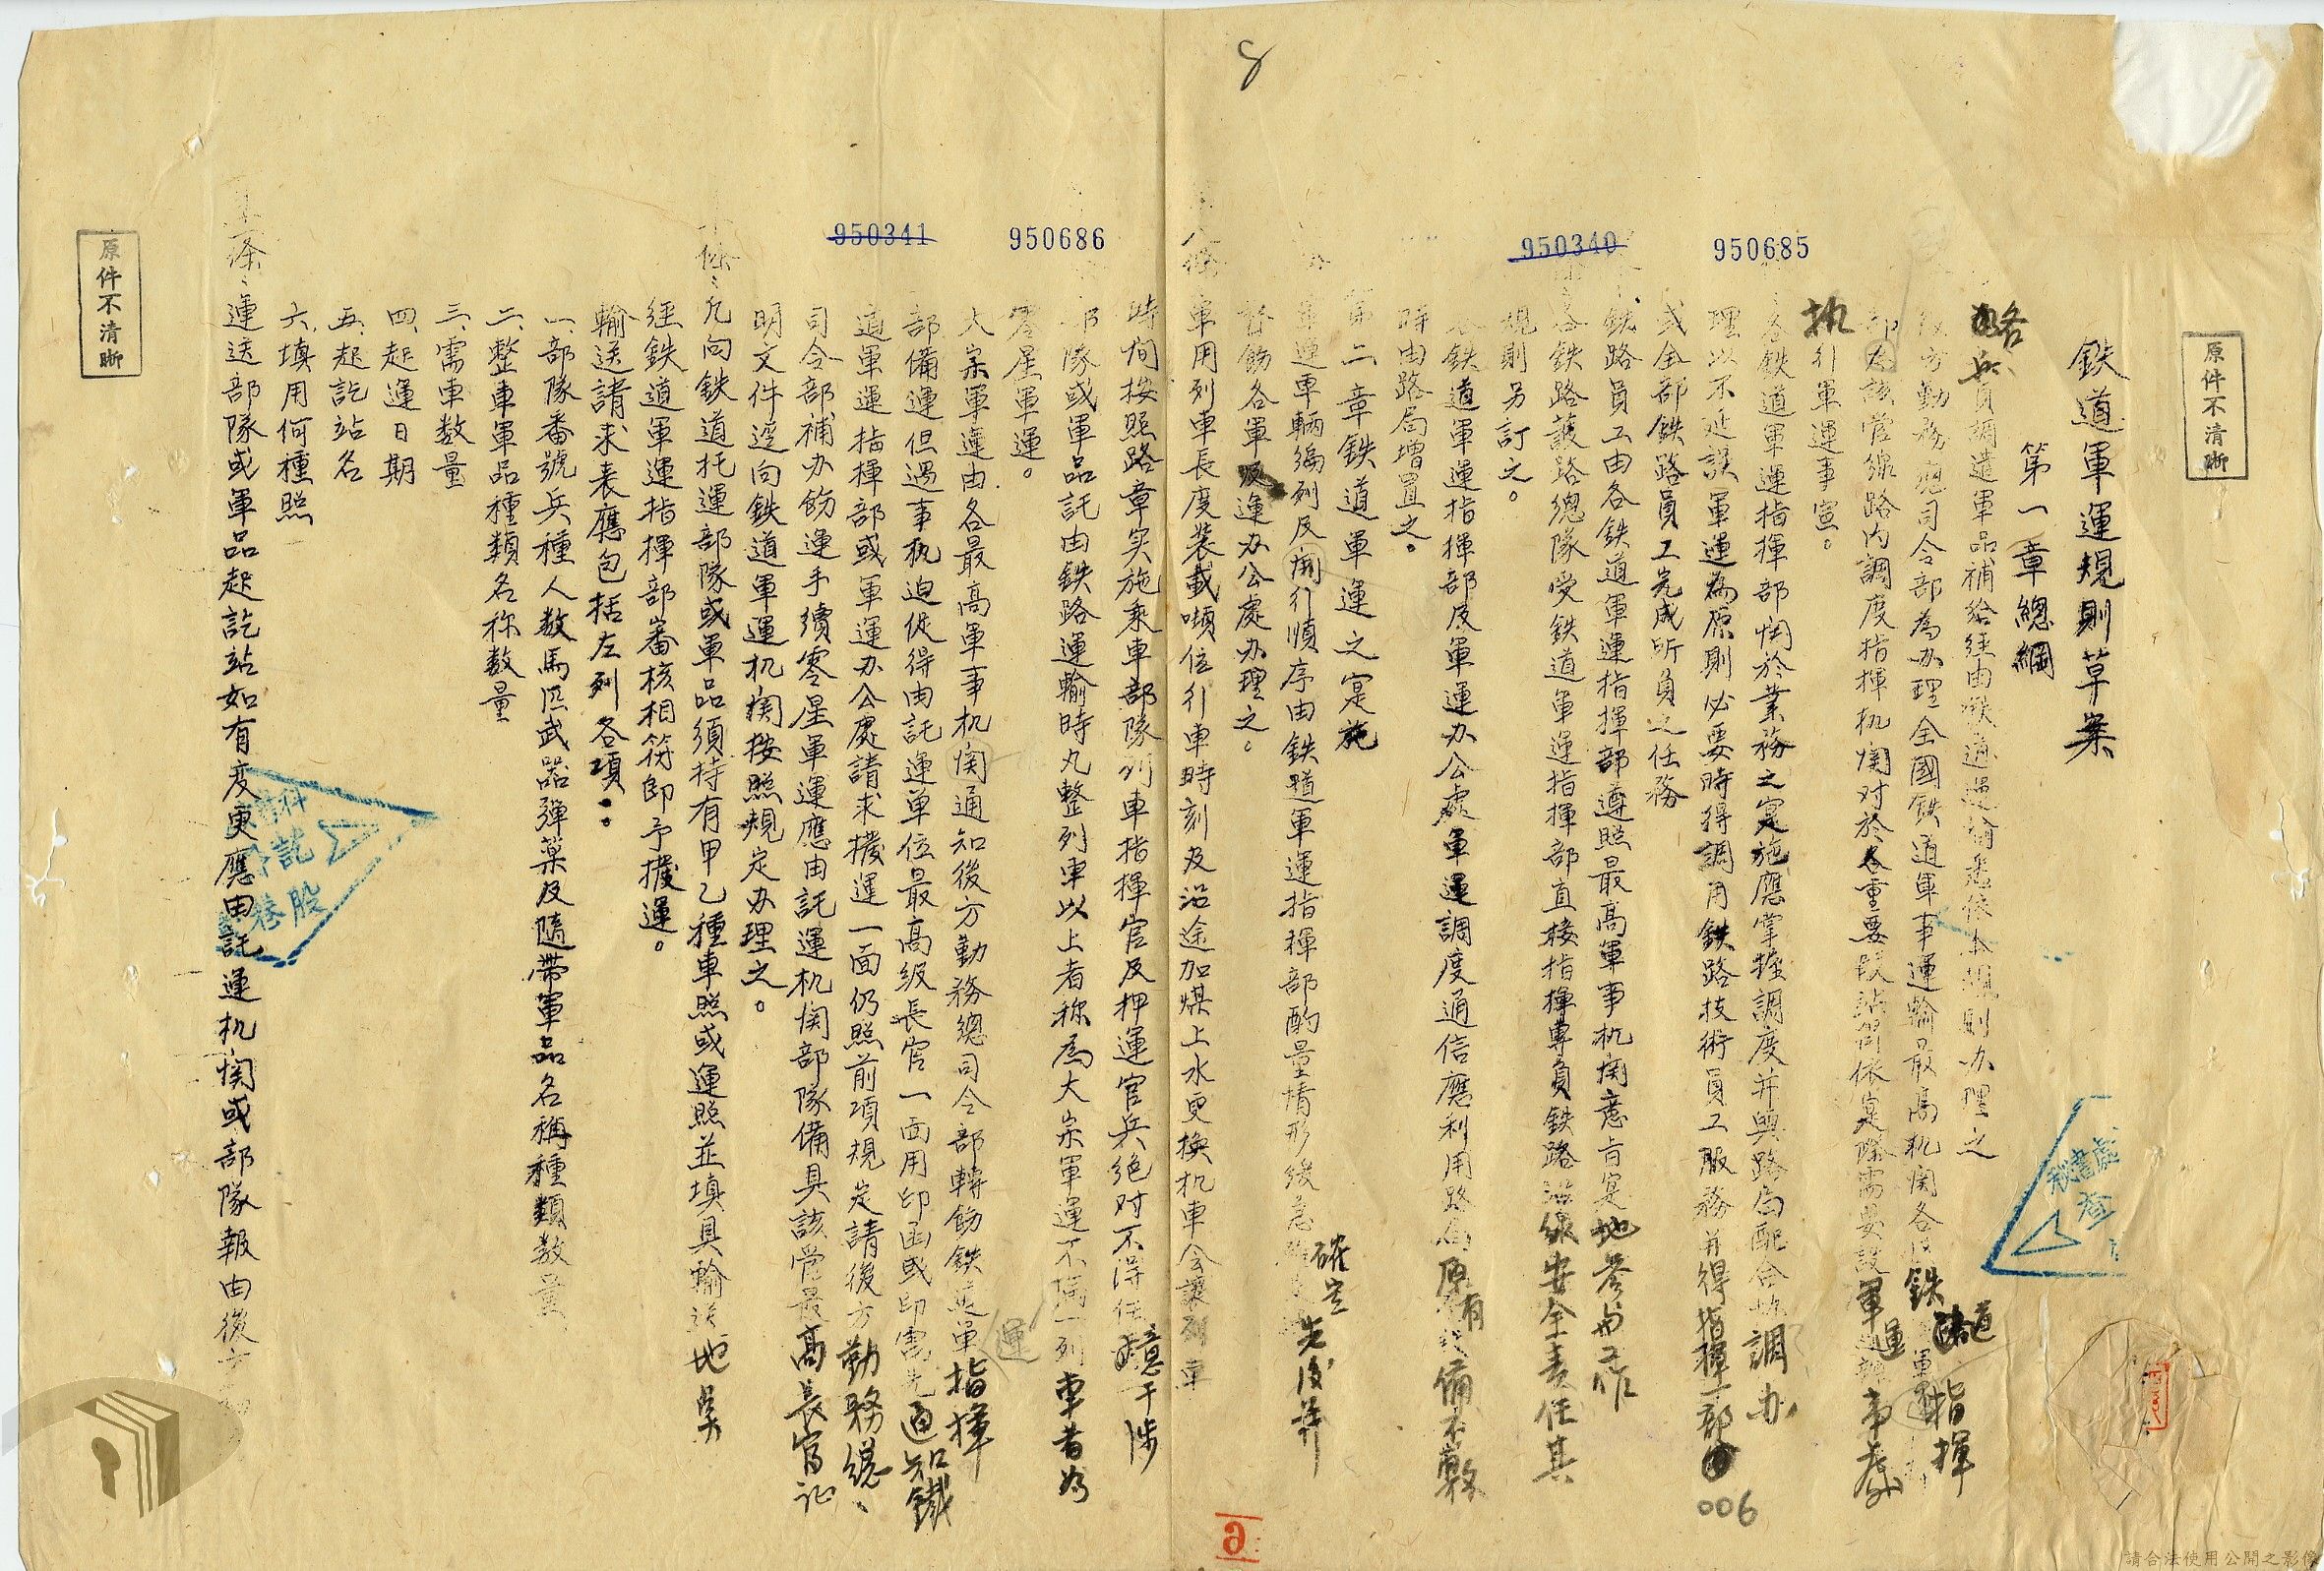 8
原件不清晰
鉄道軍運規則草案
第一章總綱
各
兵員調遣軍品補給経由鉄道運輸悉依本規則办理之
後方勤務總司令部為办理全國鉄道軍事運輸最高机関各
鉄道
軍運指揮
部為該管線路內調度指揮机関对於各重要段站得依实際需要設軍運办事處
执行軍運事宜。
各鉄道軍運指揮部関於業務之实施應掌握調度并與路局配合协調办
理以不延誤軍運為原則必要時得調用鉄路技術員工服務并得指揮一部
或全部鉄路員工完成所負之任務
鉄路員工由各鉄道軍運指揮部遵照最高軍事机関意旨实地参与工作
各鉄路護路總隊受鉄道軍運指揮部直接指揮專負鉄路沿線安全责任其
規則另訂之。
各鉄道軍運指揮部及軍運办公處軍運調度通信應利用路局原有設備不敷
時由路局增置之。
第二章鉄道軍運之实施
軍運車輛編列及開行順序由鉄道軍運指揮部酌量情形緩急確定先後并
督飭各軍運办公處办理之。
軍用列車長度裝載噸位行車時刻及沿途加煤上水更換机車会讓列車
時间按照路章实施乘車部隊列車指揮官及押運官兵絶对不得任意干涉
部隊或軍品託由鉄路運輸時凡整列車以上者称為大宗軍運不滿一列車者為
零星軍運。
大宗軍運由各最高軍事机関通知後方勤務總司令部轉飭鉄道軍運指揮
部備運但遇事机迫促得由託運单位最高級長官一面用印函或印電先通知鐵
道軍運指揮部或軍運办公處請求撥運一面仍照前項規定請後方勤務總
司令部補办飭運手續零星軍運應由託運机関部隊備具該管最高長官证
明文件逕向鉄道軍運机関按照規定办理之。
條、凡向鉄道托運部隊或軍品須持有甲乙種車照或運照並填具輸送請求
経鉄道軍運指揮部審核相符即予撥運。
輸送請求表應包括左列各項：。
一、部隊番號兵種人数馬匹武器彈葯及隨帶軍品名稱種類数量
二、整車軍品種類名称数量
三、需車数量
四、起運日期
五、起訖站名
六、填用何種照
條、運送部隊或軍品起訖站如有变更應由託運机関或部隊報由後方勤
原件不清晰
950341
950686
950340
950685
006
6
請合法使用公開之影像